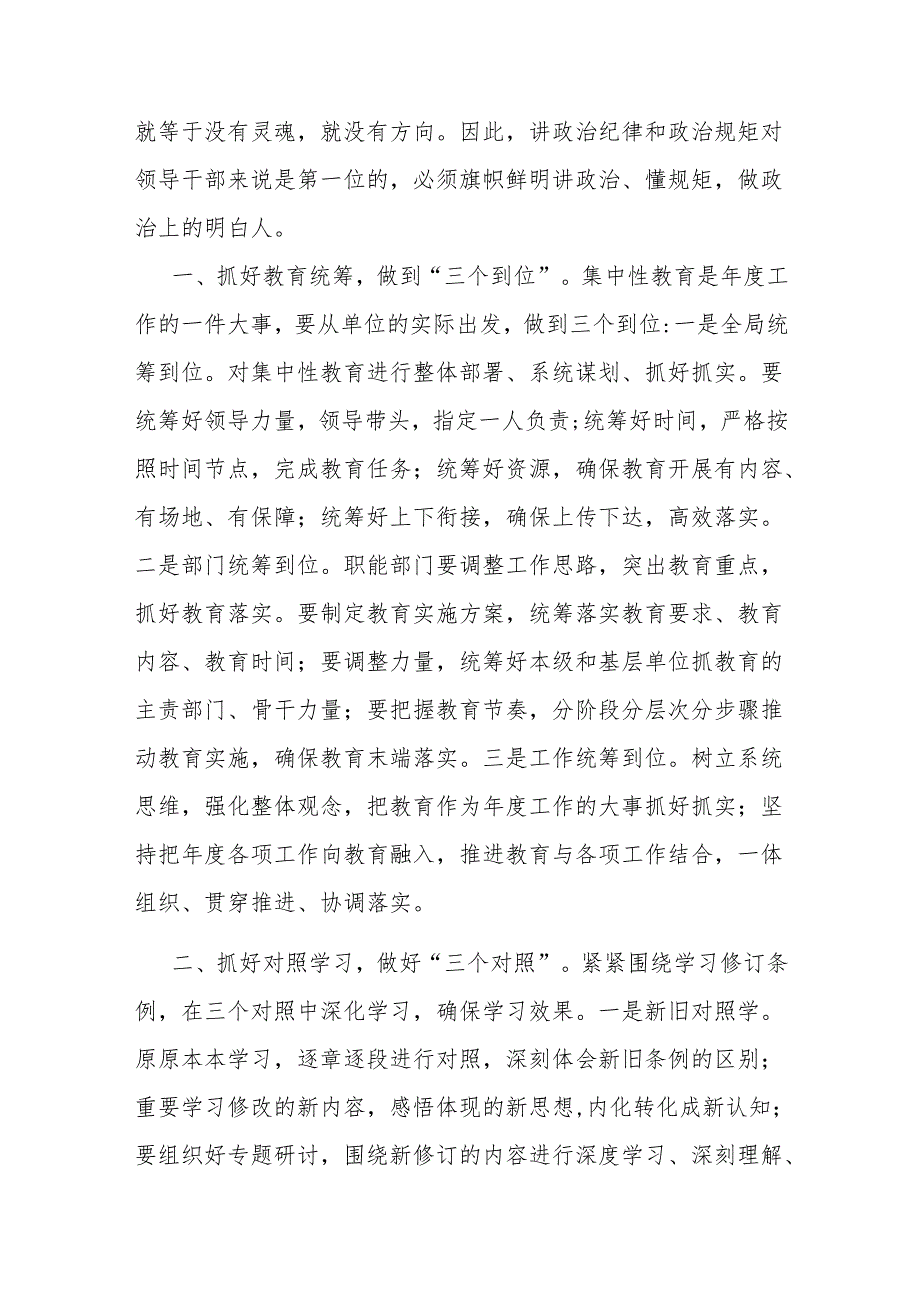 就等于没有灵魂，就没有方向。因此，讲政治纪律和政治规矩对
领导干部来说是第一位的，必须旗帜鲜明讲政治、懂规矩，做政
治上的明白人。
一、抓好教育统筹，做到“三个到位”。集中性教育是年度工
作的一件大事，要从单位的实际出发，做到三个到位:一是全局统
筹到位。对集中性教育进行整体部署、系统谋划、抓好抓实。要
统筹好领导力量，领导带头，指定一人负责;统筹好时间，严格按
照时间节点，完成教育任务；统筹好资源，确保教育开展有内容、
有场地、有保障；统筹好上下衔接，确保上传下达，高效落实。
二是部门统筹到位。职能部门要调整工作思路，突出教育重点，
抓好教育落实。要制定教育实施方案，统筹落实教育要求、教育
内容、教育时间；要调整力量，统筹好本级和基层单位抓教育的
主责部门、骨干力量；要把握教育节奏，分阶段分层次分步骤推
动教育实施，确保教育末端落实。三是工作统筹到位。树立系统
思维，强化整体观念，把教育作为年度工作的大事抓好抓实；坚
持把年度各项工作向教育融入，推进教育与各项工作结合，一体
组织、贯穿推进、协调落实。
二、抓好对照学习，做好“三个对照”。紧紧围绕学习修订条
例，在三个对照中深化学习，确保学习效果。一是新旧对照学。
原原本本学习，逐章逐段进行对照，深刻体会新旧条例的区别；
重要学习修改的新内容，感悟体现的新思想,内化转化成新认知；
要组织好专题研讨，围绕新修订的内容进行深度学习、深刻理解、